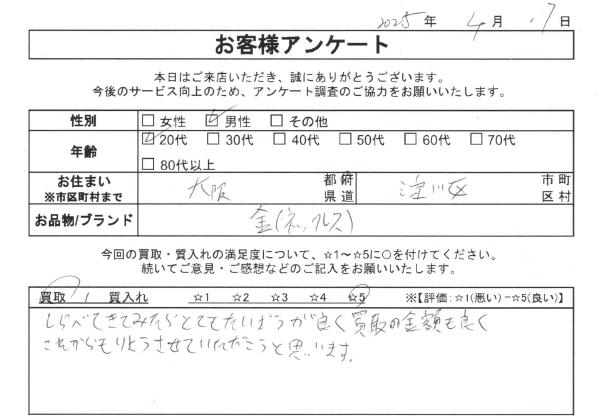 2025 年 4 月 17 日
お客様アンケート
本日はご来店いただき、誠にありがとうございます。
今後のサービス向上のため、アンケート調査のご協力をお願いいたします。
性別 □ 女性 ☑ 男性 □ その他
年齢 ☑ 20代 □ 30代 □ 40代 □ 50代 □ 60代 □ 70代
□ 80代以上
お住まい ※市区町村まで 大阪 都府県道 淀川区 市町区村
お品物/ブランド 金(ネックレス)
今回の買取・質入れの満足度について、☆1～☆5に○を付けてください。
続いてご意見・ご感想などのご記入をお願いいたします。
買取 / 質入れ ☆1 ☆2 ☆3 ☆4 ☆5 ※【評価:☆1(悪い)-☆5(良い)】
しらべてきてみたらとてもたいおうが良く買取の金額も良く
これからもりようさせていただこうと思います。